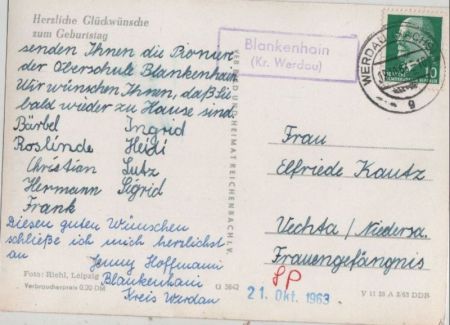 Herzliche Glückwünsche
zum Geburtstag
senden Ihnen die Pionier
der Oberschule Blankenhain
Wir wünschen Ihnen, daß Sie
bald wieder zu Hause sind.
Bärbel Ingrid
Roslinde Heidi
Christian Lutz
Hermann Sigrid
Frank
Diesen guten Wünschen
schließe ich mich herzlichst
an Jenny Hoffmann
Blankenhain
Kreis Werdau
Foto: Riehl, Leipzig
Verbraucherpreis 0,20 DM
G 3642
VERLAG BILD UND HEIMAT REICHENBACH I. V.
Blankenhain
(Kr. Werdau)
WERDAU
9
10
Frau
Elfriede Kautz
Vechta / Niedersa.
Frauengefängnis
SP
21. Okt. 1963
V 11 28 A 2/63 DDR